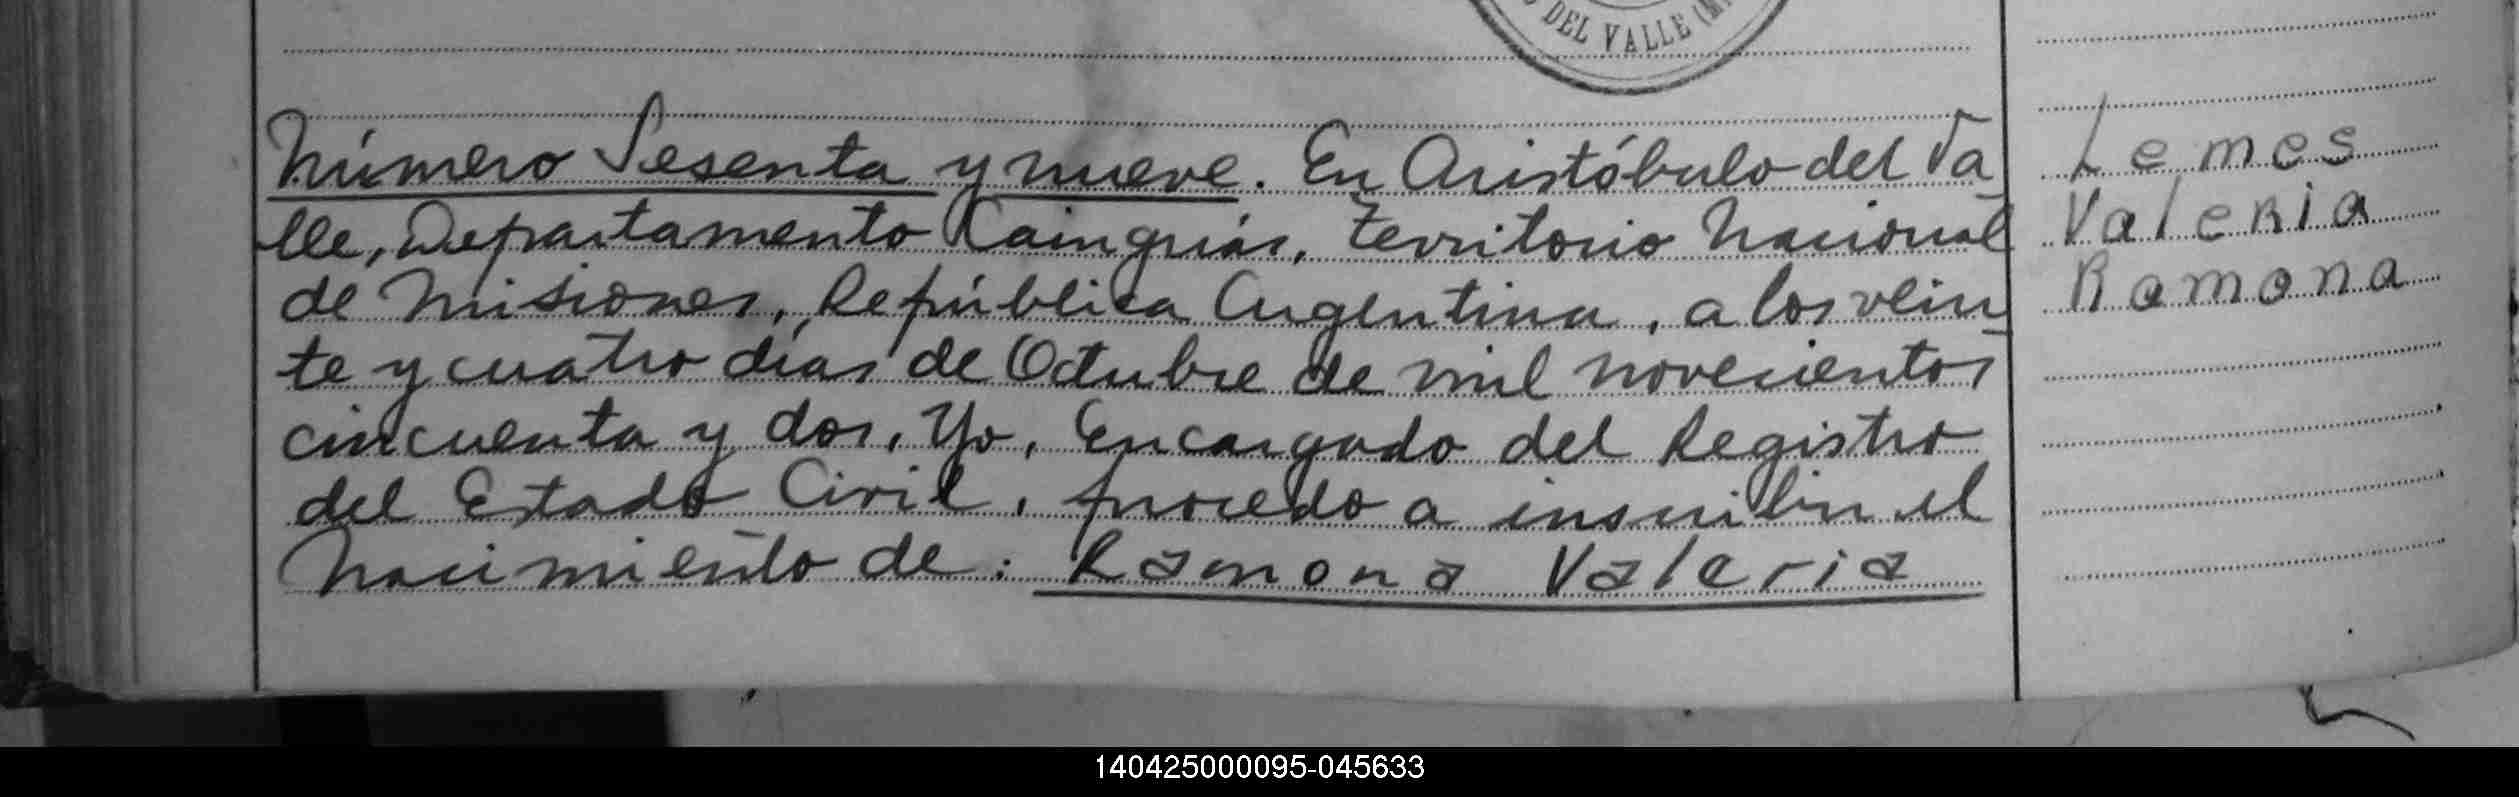 DEL VALLE (M
Número Sesenta y nueve. En Aristóbulo del Va
lle, Departamento Cainguás, Territorio Nacional
de Misiones, República Argentina, a los vein
te y cuatro días de Octubre de mil novecientos
cincuenta y dos, Yo, Encargado del Registro
del Estado Civil, procedo a inscribir el
Nacimiento de: Ramona Valeria
Lemes
Valeria
Ramona
140425000095-045633